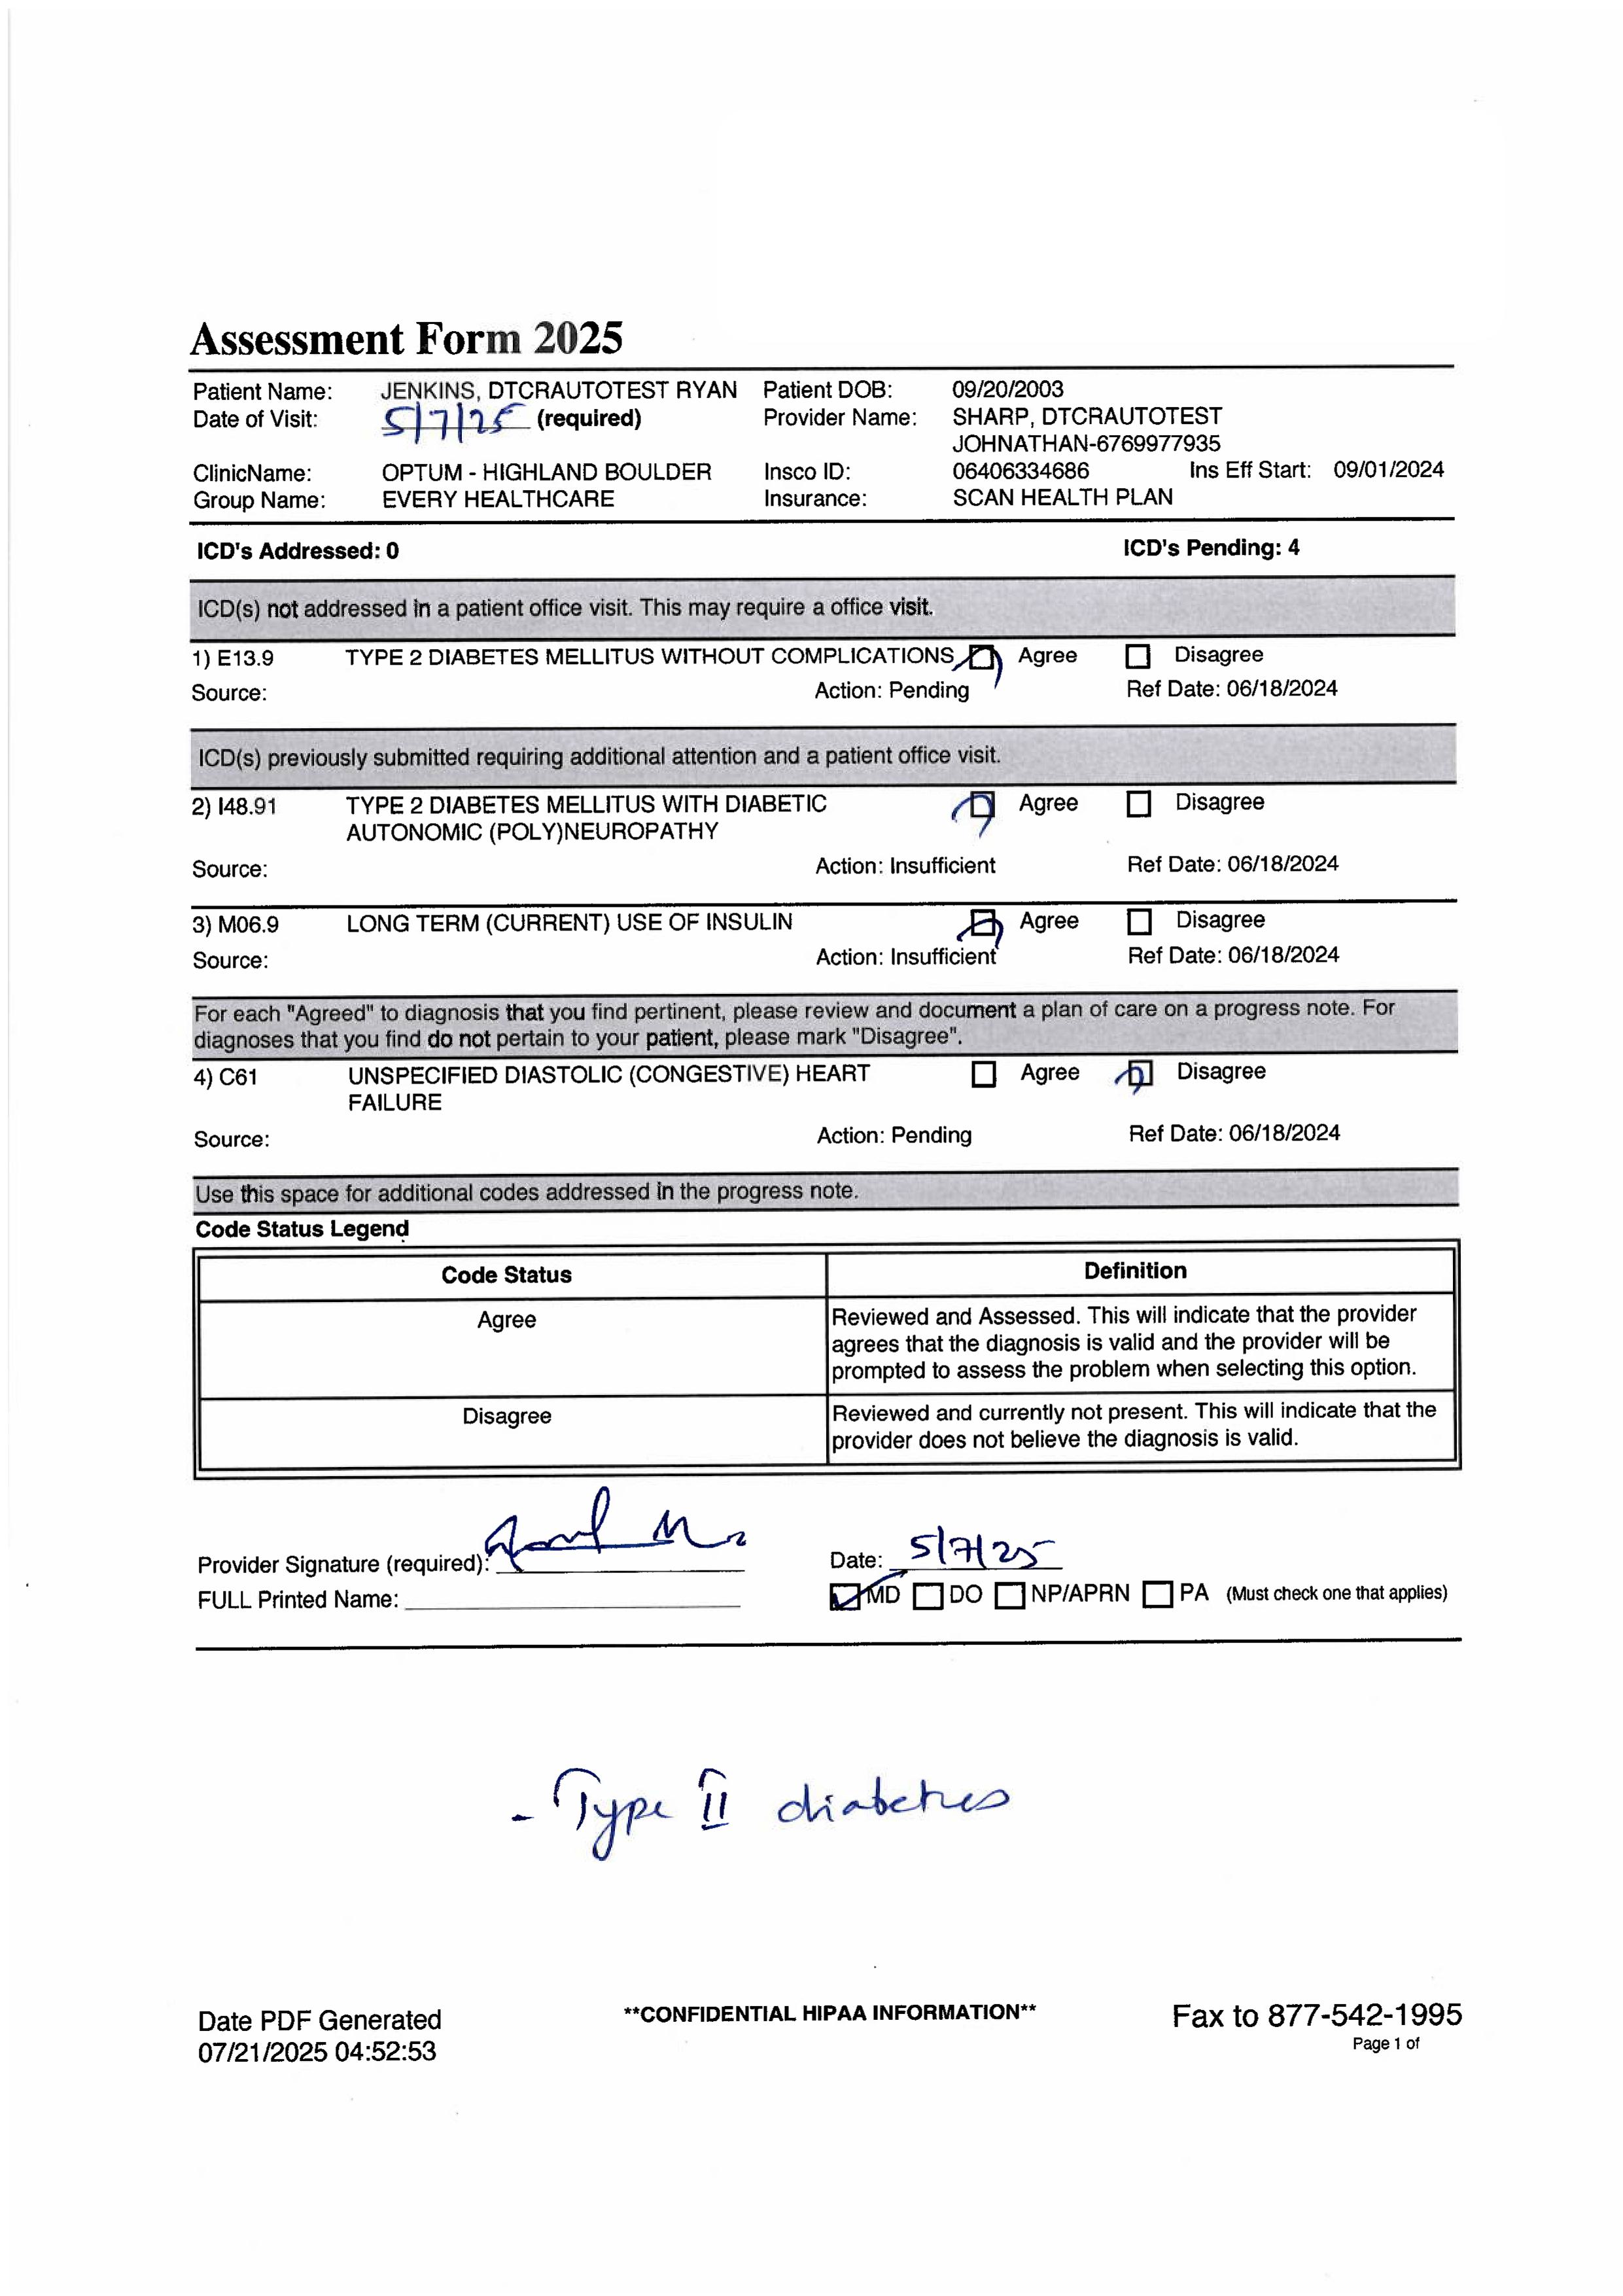 Assessment Form 2025
Patient Name: JENKINS, DTCRAUTOTEST RYAN Patient DOB: 09/20/2003
Date of Visit: 5/7/25 (required) Provider Name: SHARP, DTCRAUTOTEST
JOHNATHAN-6769977935
ClinicName: OPTUM - HIGHLAND BOULDER Insco ID: 06406334686 Ins Eff Start: 09/01/2024
Group Name: EVERY HEALTHCARE Insurance: SCAN HEALTH PLAN
ICD's Addressed: 0 ICD's Pending: 4
ICD(s) not addressed in a patient office visit. This may require a office visit.
1) E13.9 TYPE 2 DIABETES MELLITUS WITHOUT COMPLICATIONS Agree Disagree
Source: Action: Pending Ref Date: 06/18/2024
ICD(s) previously submitted requiring additional attention and a patient office visit.
2) I48.91 TYPE 2 DIABETES MELLITUS WITH DIABETIC Agree Disagree
AUTONOMIC (POLY)NEUROPATHY
Source: Action: Insufficient Ref Date: 06/18/2024
3) M06.9 LONG TERM (CURRENT) USE OF INSULIN Agree Disagree
Source: Action: Insufficient Ref Date: 06/18/2024
For each "Agreed" to diagnosis that you find pertinent, please review and document a plan of care on a progress note. For
diagnoses that you find do not pertain to your patient, please mark "Disagree".
4) C61 UNSPECIFIED DIASTOLIC (CONGESTIVE) HEART Agree Disagree
FAILURE
Source: Action: Pending Ref Date: 06/18/2024
Use this space for additional codes addressed in the progress note.
Code Status Legend
Code Status Definition
Agree Reviewed and Assessed. This will indicate that the provider
agrees that the diagnosis is valid and the provider will be
prompted to assess the problem when selecting this option.
Disagree Reviewed and currently not present. This will indicate that the
provider does not believe the diagnosis is valid.
Provider Signature (required): Date: 5/7/25
FULL Printed Name: MD DO NP/APRN PA (Must check one that applies)
- Type II diabetes
Date PDF Generated **CONFIDENTIAL HIPAA INFORMATION** Fax to 877-542-1995
07/21/2025 04:52:53 Page 1 of